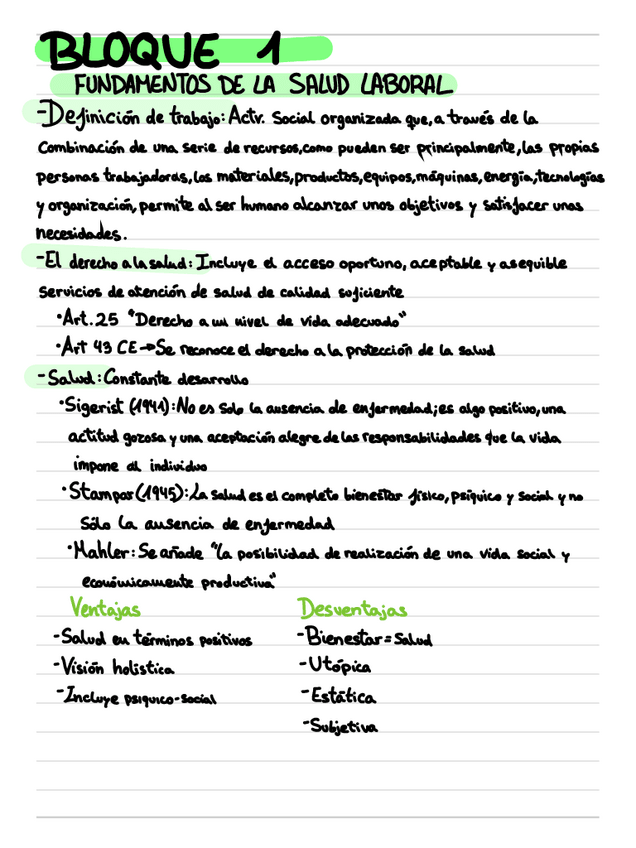 BLOQUE 1
FUNDAMENTOS DE LA SALUD LABORAL
-Definición de trabajo: Actv. Social organizada que, a través de la
Combinación de una serie de recursos, como pueden ser principalmente, las propias
personas trabajadoras, los materiales, productos, equipos, máquinas, energía, tecnologías
y organización, permite al ser humano alcanzar unos objetivos y satisfacer unas
necesidades.
-El derecho a la salud: Incluye el acceso oportuno, aceptable y asequible
servicios de atención de salud de calidad suficiente
·Art. 25 "Derecho a un nivel de vida adecuado"
·Art 43 CE→Se reconoce el derecho a la protección de la salud
-Salud: Constante desarrollo
·Sigerist (1941): No es solo la ausencia de enfermedad; es algo positivo, una
actitud gozosa y una aceptación alegre de las responsabilidades que la vida
impone al individuo
·Stampar (1945): La salud es el completo bienestar físico, psíquico y social y no
Sólo la ausencia de enfermedad
·Mahler: Se añade "la posibilidad de realización de una vida social y
económicamente productiva"
Ventajas Desventajas
-Salud en términos positivos -Bienestar = Salud
-Visión holística -Utópica
-Incluye psíquico-social -Estática
-Subjetiva